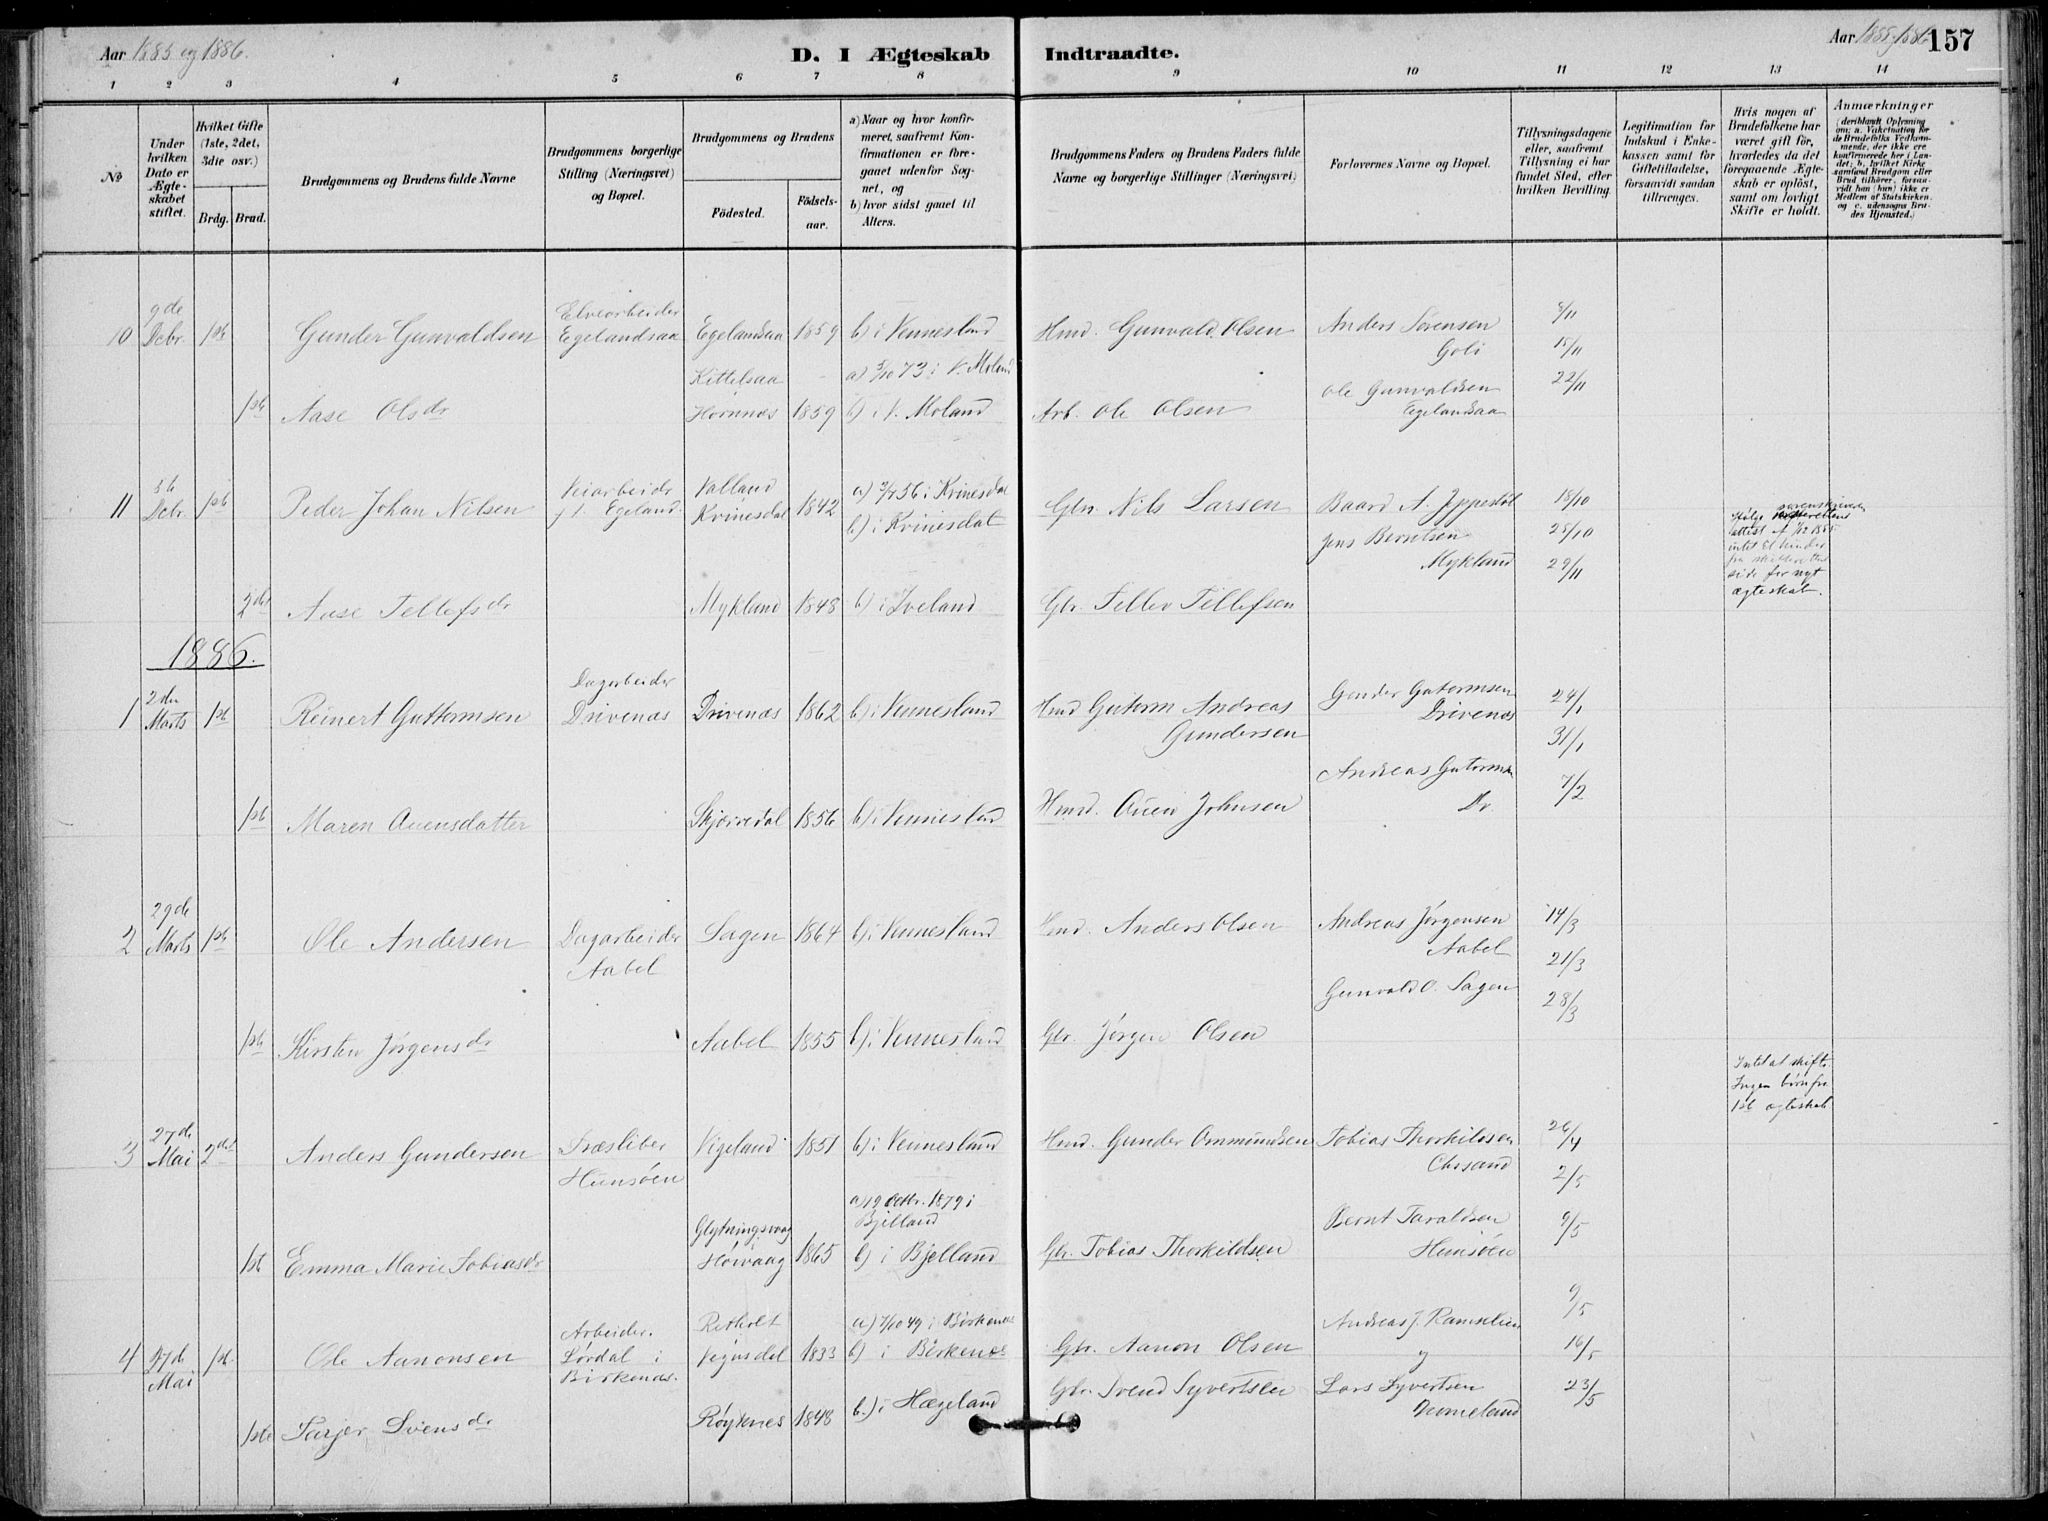 Aar 1885 og 1886.
D. I Ægteskab Indtraadte.
Aar 1885 og 1886
157
1 2 3 4 5 6 7 8 9 10 11 12 13 14
No
Under hvilken Dato er Ægteskabet stiftet.
Hvilket Gifte (1ste, 2det, 3die osv.)
Brdg. Brud.
Brudgommens og Brudens fulde Navne
Brudgommens borgerlige Stilling (Næringsvei) og Bopæl.
Brudgommens og Brudens
Födested.
Födsels-aar.
a) Naar og hvor konfirmeret, saafremt Konfirmationen er foregaaet udenfor Sognet, og
b) hvor sidst gaaet til Alters.
Brudgommens Faders og Brudens Faders fulde Navne og borgerlige Stillinger (Næringsvei)
Forlovernes Navne og Bopæl.
Tillysningsdagene eller, saafremt Tillysning ei har fundet Sted, efter hvilken Bevilling.
Legitimation for Indskud i Enkekassen samt for Giftetilladelse, forsaavidt saadan tiltrænges.
Hvis nogen af Brudefolkene har været gift för, hvorledes da det foregaaende Ægteskab er oplöst, samt om lovligt Skifte er holdt.
Anmærkninger (deriblandt Oplysning om: a. Vakcination for de Brudefolks Vedkommende, der ikke ere konfirmerede her i Landet; b. hvilket Kirkesamfund Brudgom eller Brud tilhörer, forsaavidt han (hun) ikke er Medlem af Statskirken, og c. udensogns Brudes Hjemsted.)
10 9de Debr. 1ste Gunder Gunvaldsen Elvearbeider Egelandsaa Egelandsaa 1859 b) i Vennesland Hmd. Gunvald Olsen Anders Sørensen Goli 8/11 15/11
Kittelsaa a) 5/10 73 i V. Moland
1ste Aase Olsdr Hornnæs 1859 b) i V. Moland Arb. Ole Olsen Ole Gunvaldsen Egelandsaa 22/11
11 Debr. 1ste Peder Johan Nilsen Veiarbeider Egeland. Valland Kvinesdal 1842 a) 56 i Kvinesdal b) i Kvinesdal Gbr. Nils Larsen Baard A. Jppestøl 18/10
Jens Berntsen Mykland 25/10 29/11
Ifølge sorenskriverens attest 1885 intet til hinder fra skifterettens side for nyt ægteskab.
2det Aase Tellefsdr Mykland 1848 b) i Iveland Gbr. Tellev Tellefsen
1886.
1 2den Marts 1ste Reinert Guttormsen Dagarbeider Drivenæs Drivenæs 1862 b) i Vennesland Hmd Gutorm Andreas Gundersen Gunder Gutormsen Drivenæs 24/1 31/1
Andreas Gutormsen Do. 7/2
1ste Maren Auensdatter Skjærvedal 1856 b) i Vennesland Hmd. Auen Johnsen
2 29de Marts 1ste Ole Andersen Dagarbeider Aabel Sagen 1864 b) i Vennesland Hmd. Anders Olsen Andreas Jørgensen Aabel 14/3 21/3
Gunvald O. Sagen 28/3
1ste Kirsten Jørgensdr Aabel 1855 b) i Vennesland Gbr. Jørgen Olsen
Intet at skifte. Ingen børn fra 1ste ægteskab
3 27de Mai 2det Anders Gundersen Træsliber Hunsøen Vigeland 1851 b) i Vennesland Hmd. Gunder Ommundsen Tobias Thorkildsen Chrsand 26/4 2/5
a) 19 Octbr. 1879 i Bjelland
1ste Emma Marie Tobiasdr Høivaag 1865 b) i Bjelland Gbr. Tobias Thorkildsen Bernt Taraldsen Hunsøen 9/5
4 27de Mai 1ste Ole Aanonsen Arbeider. Lørdal i Birkenæs. Retholt Vegusdal 1833 a) 7/10 49 i Birkenæs b) i Birkenæs Gbr. Aanon Olsen Andreas J. Ramselien 9/5 16/5
og
1ste Tarjer Svensdr Røyknes 1848 b.) i Hægeland Gbr. Svend Syvertsen Lars Syvertsen 23/5